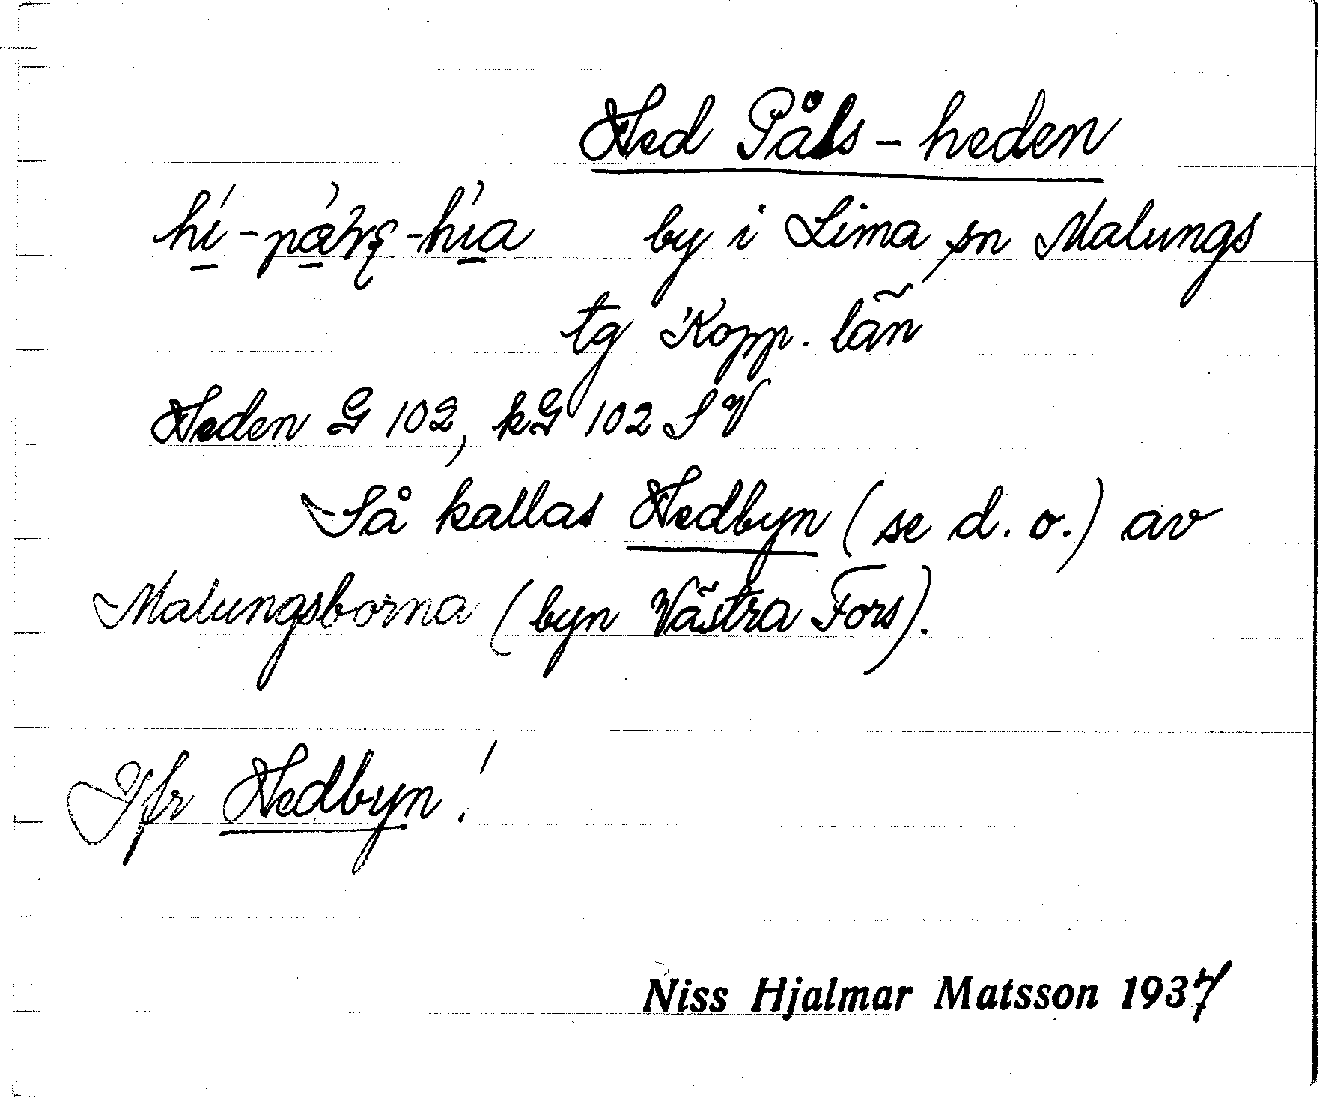 Hed Påls-heden
by i Lima sn Malungs
tg Kopp. län
Heden G 102, kG 102 SV
Så kallas Hedbyn (se d. o.) av
Malungsborna (byn Västra Fors).
Jfr Hedbyn!
Niss Hjalmar Matsson 1937